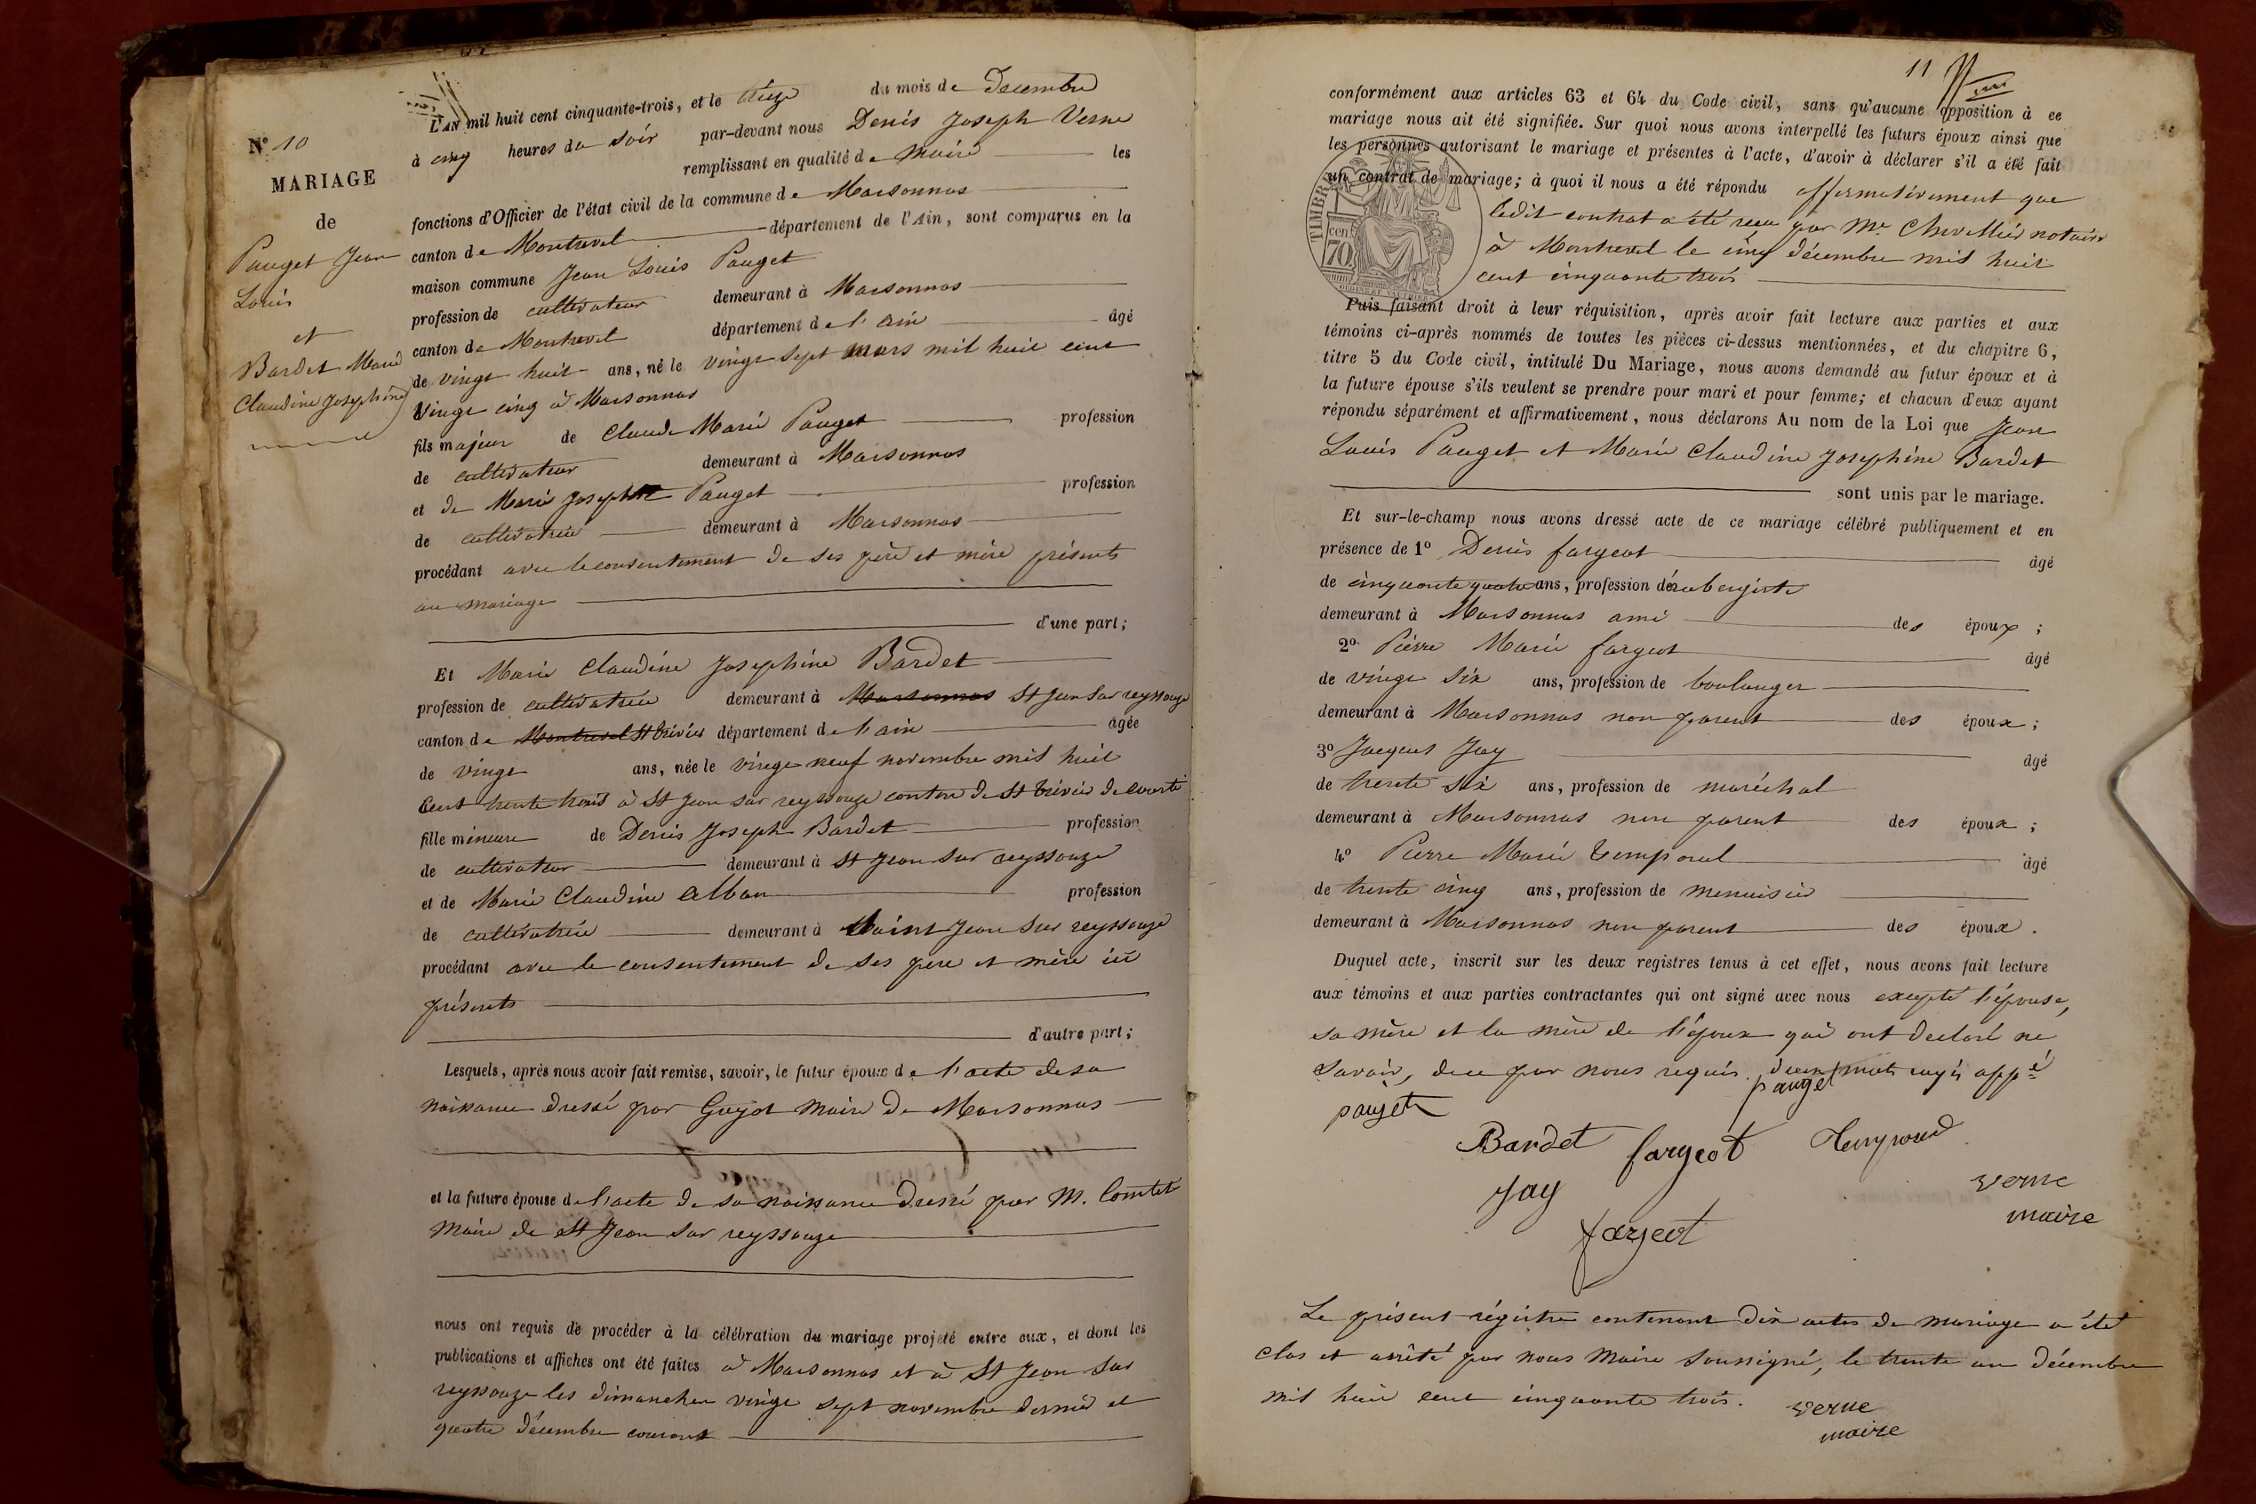 N° 10
MARIAGE
de
Pauget Jean
Louis
et
Bardet Marie
Claudine Josephine
L'AN mil huit cent cinquante-trois, et le treize du mois de Decembre
à cinq heures du soir par-devant nous Denis Joseph Verne
remplissant en qualité de maire les
fonctions d'Officier de l'état civil de la commune de Marsonnas
canton de Montrevel département de l'Ain, sont comparus en la
maison commune Jean Louis Pauget
profession de cultivateur demeurant à Marsonnas
canton de Montrevel département de l'ain âgé
de vingt huit ans, né le vingt sept mars mil huit cent
vingt cinq à Marsonnas
fils majeur de Claude Marie Pauget profession
de cultivateur demeurant à Marsonnas
et de Marie Josephte Pauget profession
de cultivatrice demeurant à Marsonnas
procédant avec le consentement de ses père et mère présents
au mariage
d'une part;
Et Marie Claudine Josephine Bardet
profession de cultivatrice demeurant à Marsonnas St Jean sur reyssouze
canton de Montrevel St trivier département de l'ain âgée
de vingt ans, née le vingt neuf novembre mil huit
cent trente trois à St Jean sur reyssouze canton de St trivier de courte
fille mineure de Denis Joseph Bardet profession
de cultivateur demeurant à St Jean sur reyssouze
et de Marie Claudine Alban profession
de cultivatrice demeurant à Saint Jean sur reyssouze
procédant avec le consentement de ses père et mère ici
présents
d'autre part;
Lesquels, après nous avoir fait remise, savoir, le futur époux de l'acte de sa
naissance dressé par Guyot maire de Marsonnas
et la future épouse de l'acte de sa naissance dressé par M. Comtet
maire de St Jean sur reyssouze
nous ont requis de procéder à la célébration du mariage projeté entre eux, et dont les
publications et affiches ont été faites à Marsonnas et à St Jean sur
reyssouze les dimanches vingt sept novembre dernier et
quatre décembre courant
11
conformément aux articles 63 et 64 du Code civil, sans qu'aucune opposition à ce
mariage nous ait été signifiée. Sur quoi nous avons interpellé les futurs époux ainsi que
les personnes autorisant le mariage et présentes à l'acte, d'avoir à déclarer s'il a été fait
un contrat de mariage; à quoi il nous a été répondu affirmativement que
ledit contrat a été recu par Me Chevillier notaire
à Montrevel le cinq décembre mil huit
cent cinquante trois
TIMBRE
70 cen
Puis faisant droit à leur réquisition, après avoir fait lecture aux parties et aux
témoins ci-après nommés de toutes les pièces ci-dessus mentionnées, et du chapitre 6,
titre 5 du Code civil, intitulé Du Mariage, nous avons demandé au futur époux et à
la future épouse s'ils veulent se prendre pour mari et pour femme; et chacun d'eux ayant
répondu séparément et affirmativement, nous déclarons Au nom de la Loi que Jean
Louis Pauget et Marie Claudine Josephine Bardet
sont unis par le mariage.
Et sur-le-champ nous avons dressé acte de ce mariage célébré publiquement et en
présence de 1° Denis fargeot âgé
de cinquante quatre ans, profession d'aubergiste
demeurant à Marsonnas ami des époux;
2° Pierre Marie fargeot âgé
de vingt six ans, profession de boulanger
demeurant à Marsonnas non parent des époux;
3° Jacques Jay âgé
de trente six ans, profession de maréchal
demeurant à Marsonnas non parent des époux;
4° Pierre Marie temporal âgé
de trente cinq ans, profession de menuisier
demeurant à Marsonnas non parent des époux.
Duquel acte, inscrit sur les deux registres tenus à cet effet, nous avons fait lecture
aux témoins et aux parties contractantes qui ont signé avec nous excepté l'épouse,
sa mère et la mère de l'époux qui ont declaré ne
savoir, de ce par nous requis. deux mots rayés appé
pauget pauget
Bardet fargeot
Jay verne
fargeot maire
Le présent régistre contenant dix actes de mariage a été
clos et arrêté par nous Maire soussigné, le trente un décembre
mil huit cent cinquante trois. verne
maire